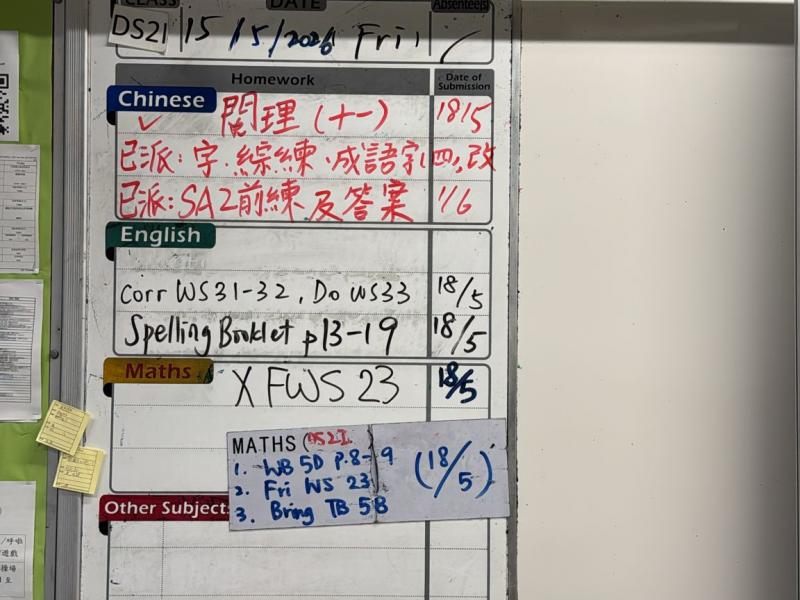 CLASS DATE Absentee(s)
DS2I 15/5/2026 Fri. /
Homework Date of Submission
Chinese
✓ 閱理(十一) 18/5
已派:字.綜練.成語字(四),改
已派:SA2前練及答案 1/6
English
Corr WS31-32, Do WS33 18/5
Spelling Booklet p13-19 18/5
Maths
X FWS 23 18/5
MATHS (DS2I
1. WB 5D P.8-9 (18/5)
2. Fri WS 23
3. Bring TB 5B
Other Subject